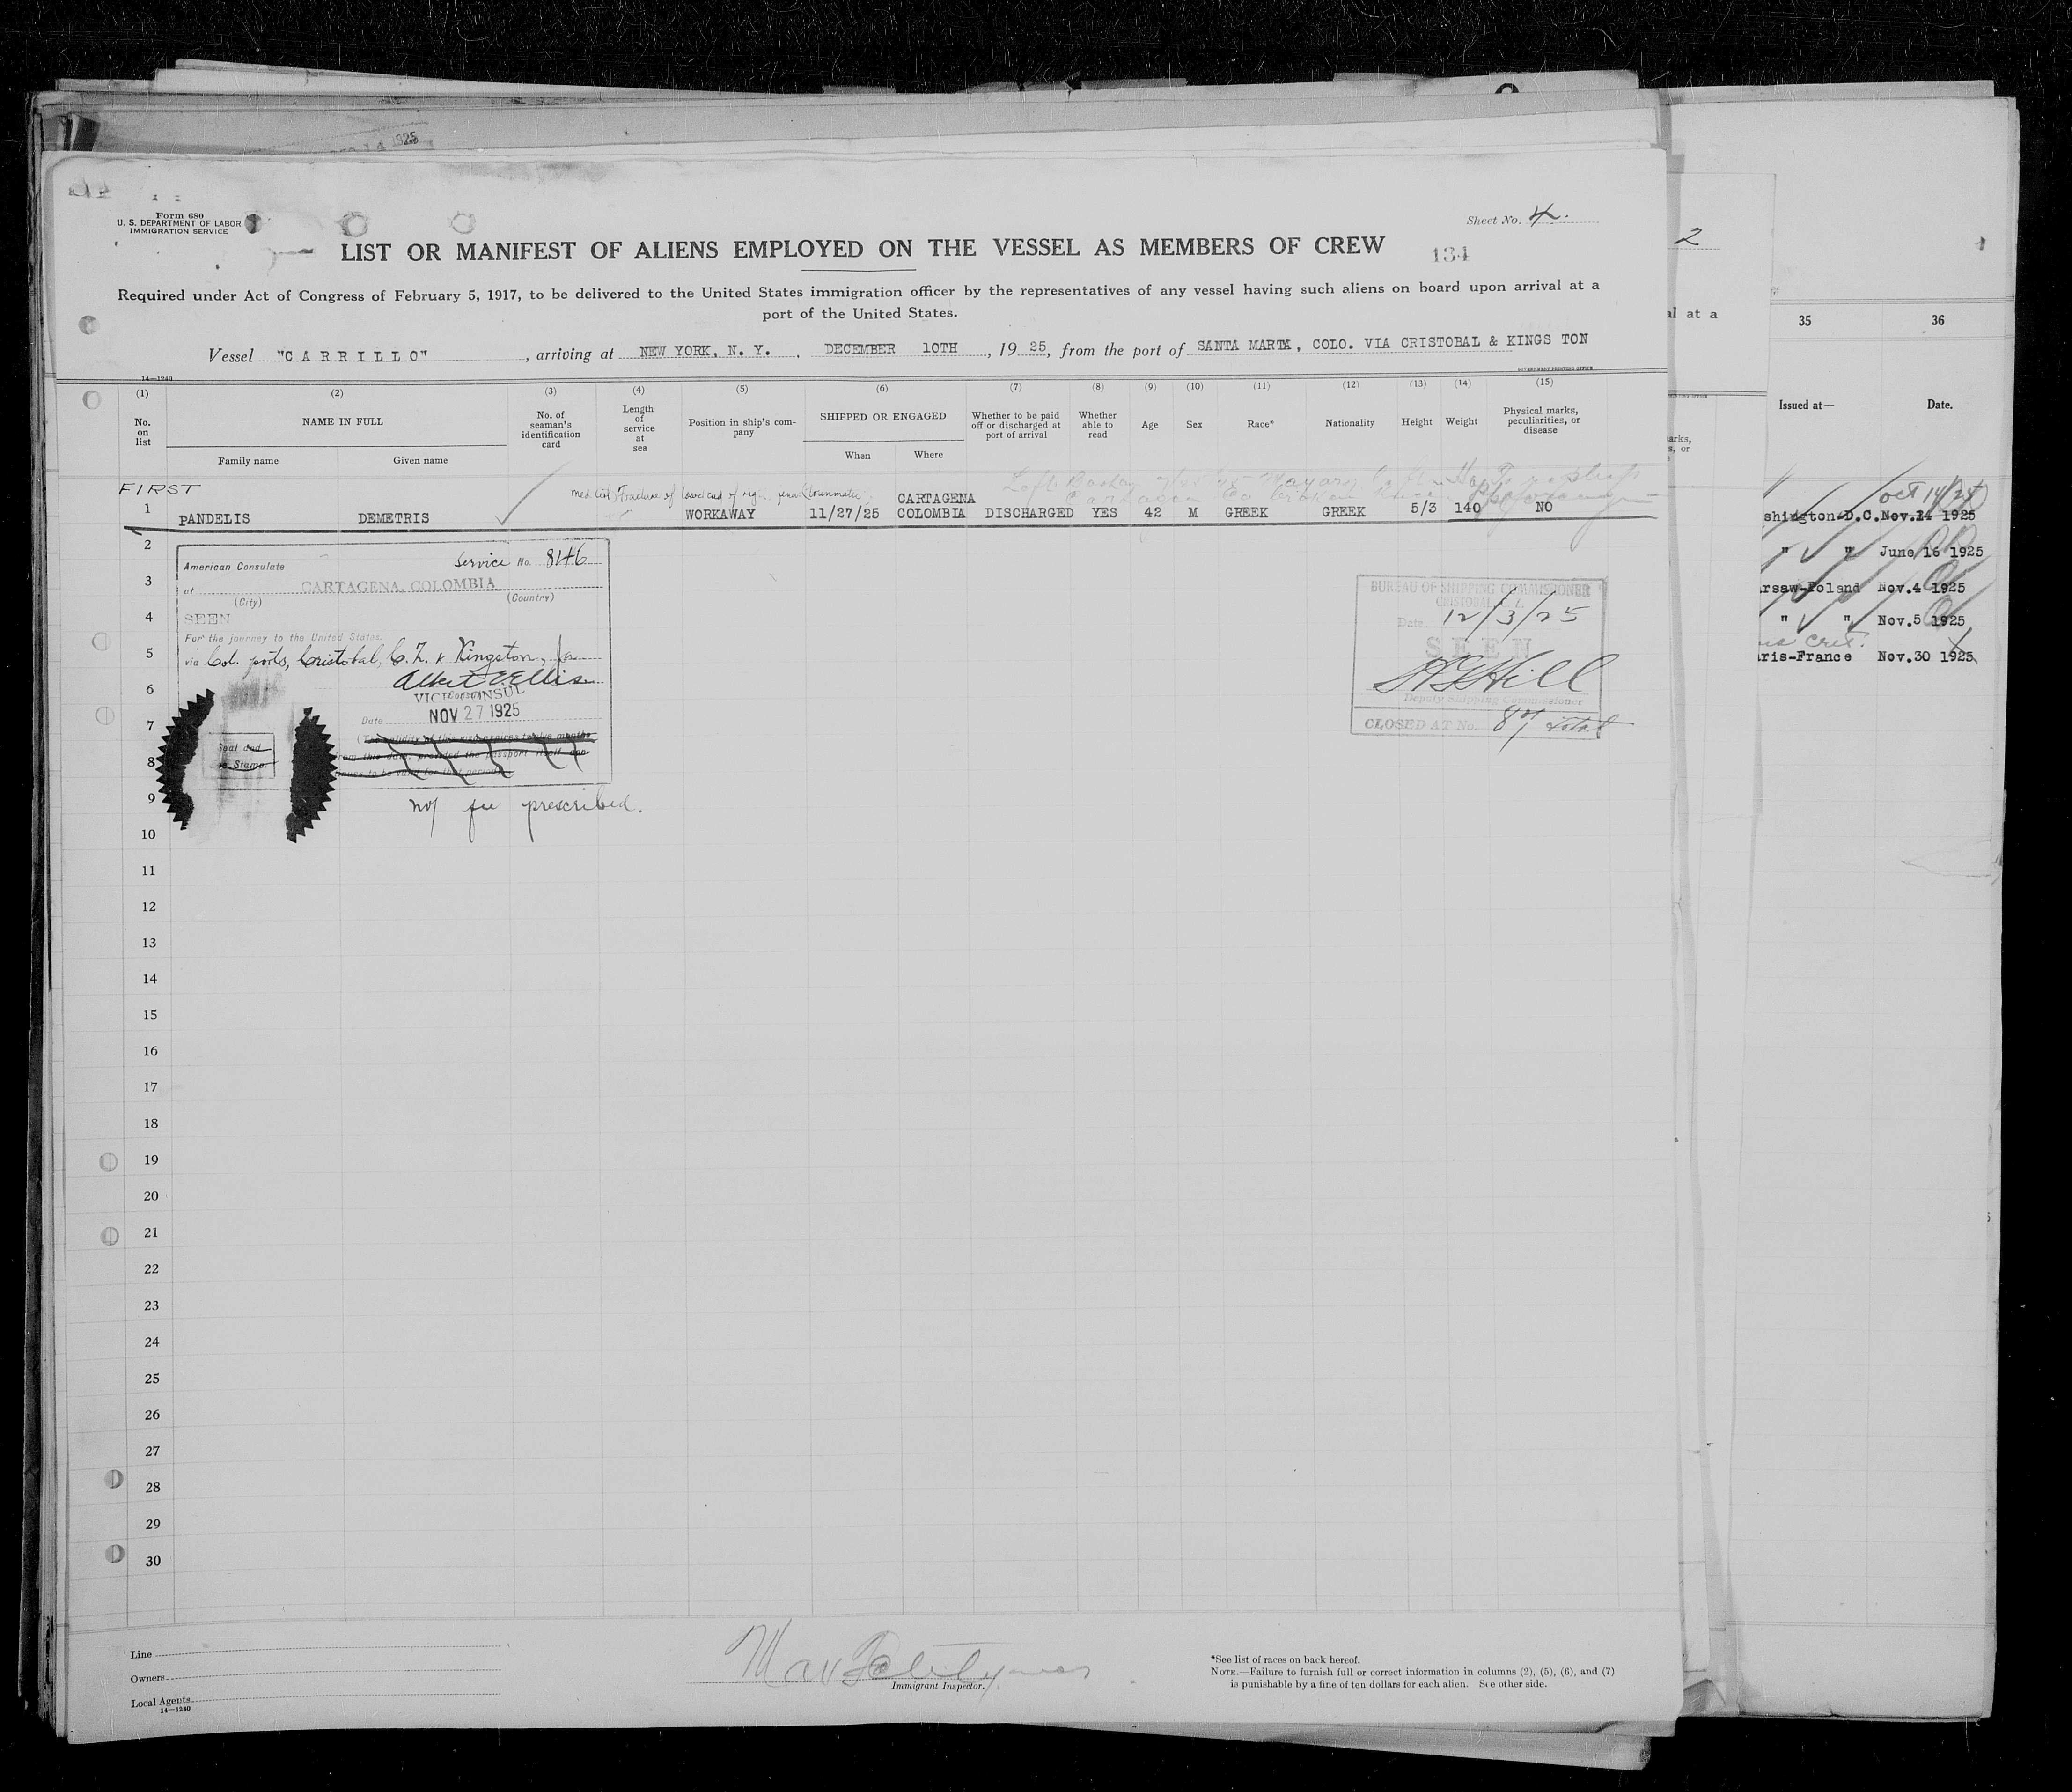 1925
Form 680
U. S. DEPARTMENT OF LABOR
IMMIGRATION SERVICE
Sheet No. 4.
LIST OR MANIFEST OF ALIENS EMPLOYED ON THE VESSEL AS MEMBERS OF CREW
134
Required under Act of Congress of February 5, 1917, to be delivered to the United States immigration officer by the representatives of any vessel having such aliens on board upon arrival at a
port of the United States.
Vessel "CARRILLO", arriving at NEW YORK, N. Y., DECEMBER 10TH, 19 25, from the port of SANTA MARTA, COLO. VIA CRISTOBAL & KINGS TON
14—1240
GOVERNMENT PRINTING OFFICE
(1) (2) (3) (4) (5) (6) (7) (8) (9) (10) (11) (12) (13) (14) (15)
No. on list
NAME IN FULL
Family name
Given name
No. of seaman's identification card
Length of service at sea
Position in ship's company
SHIPPED OR ENGAGED
When
Where
Whether to be paid off or discharged at port of arrival
Whether able to read
Age
Sex
Race*
Nationality
Height
Weight
Physical marks, peculiarities, or disease
FIRST
Fracture of lower end of
1 PANDELIS DEMETRIS WORKAWAY 11/27/25 CARTAGENA COLOMBIA DISCHARGED YES 42 M GREEK GREEK 5/3 140 NO
2
3
4
5
6
7
8
9
10
11
12
13
14
15
16
17
18
19
20
21
22
23
24
25
26
27
28
29
30
American Consulate
Service No. 8146
at CARTAGENA, COLOMBIA
(City) (Country)
SEEN
For the journey to the United States.
via Col. ports, Cristobal, C.Z. & Kingston, Ja
Albert E. Ellis
VICE CONSUL
Date NOV 27 1925
(The validity of this visa expires twelve months
from this date, provided the passport itself con-
tinues to be valid for that period)
Seal and
Stamp.
No fee prescribed.
BUREAU OF SHIPPING COMMISSIONER
CRISTOBAL C. Z.
Date 12/3/25
SEEN
Hill
Deputy Shipping Commissioner
CLOSED AT No. 87 total
Line
Owners
Local Agents
14—1240
Immigrant Inspector.
*See list of races on back hereof.
NOTE.—Failure to furnish full or correct information in columns (2), (5), (6), and (7)
is punishable by a fine of ten dollars for each alien. See other side.
2
al at a
35 36
Issued at— Date.
oct 14/24
shington D.C. Nov. 14 1925
" " June 16 1925
rsaw-Poland Nov.4 1925
" " Nov.5 1925
ris-France Nov.30 1925